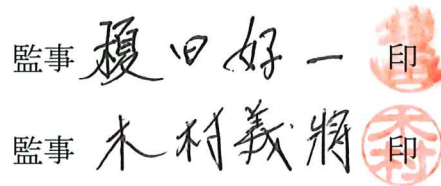 監事 榎田好一 印
監事 木村義將 印